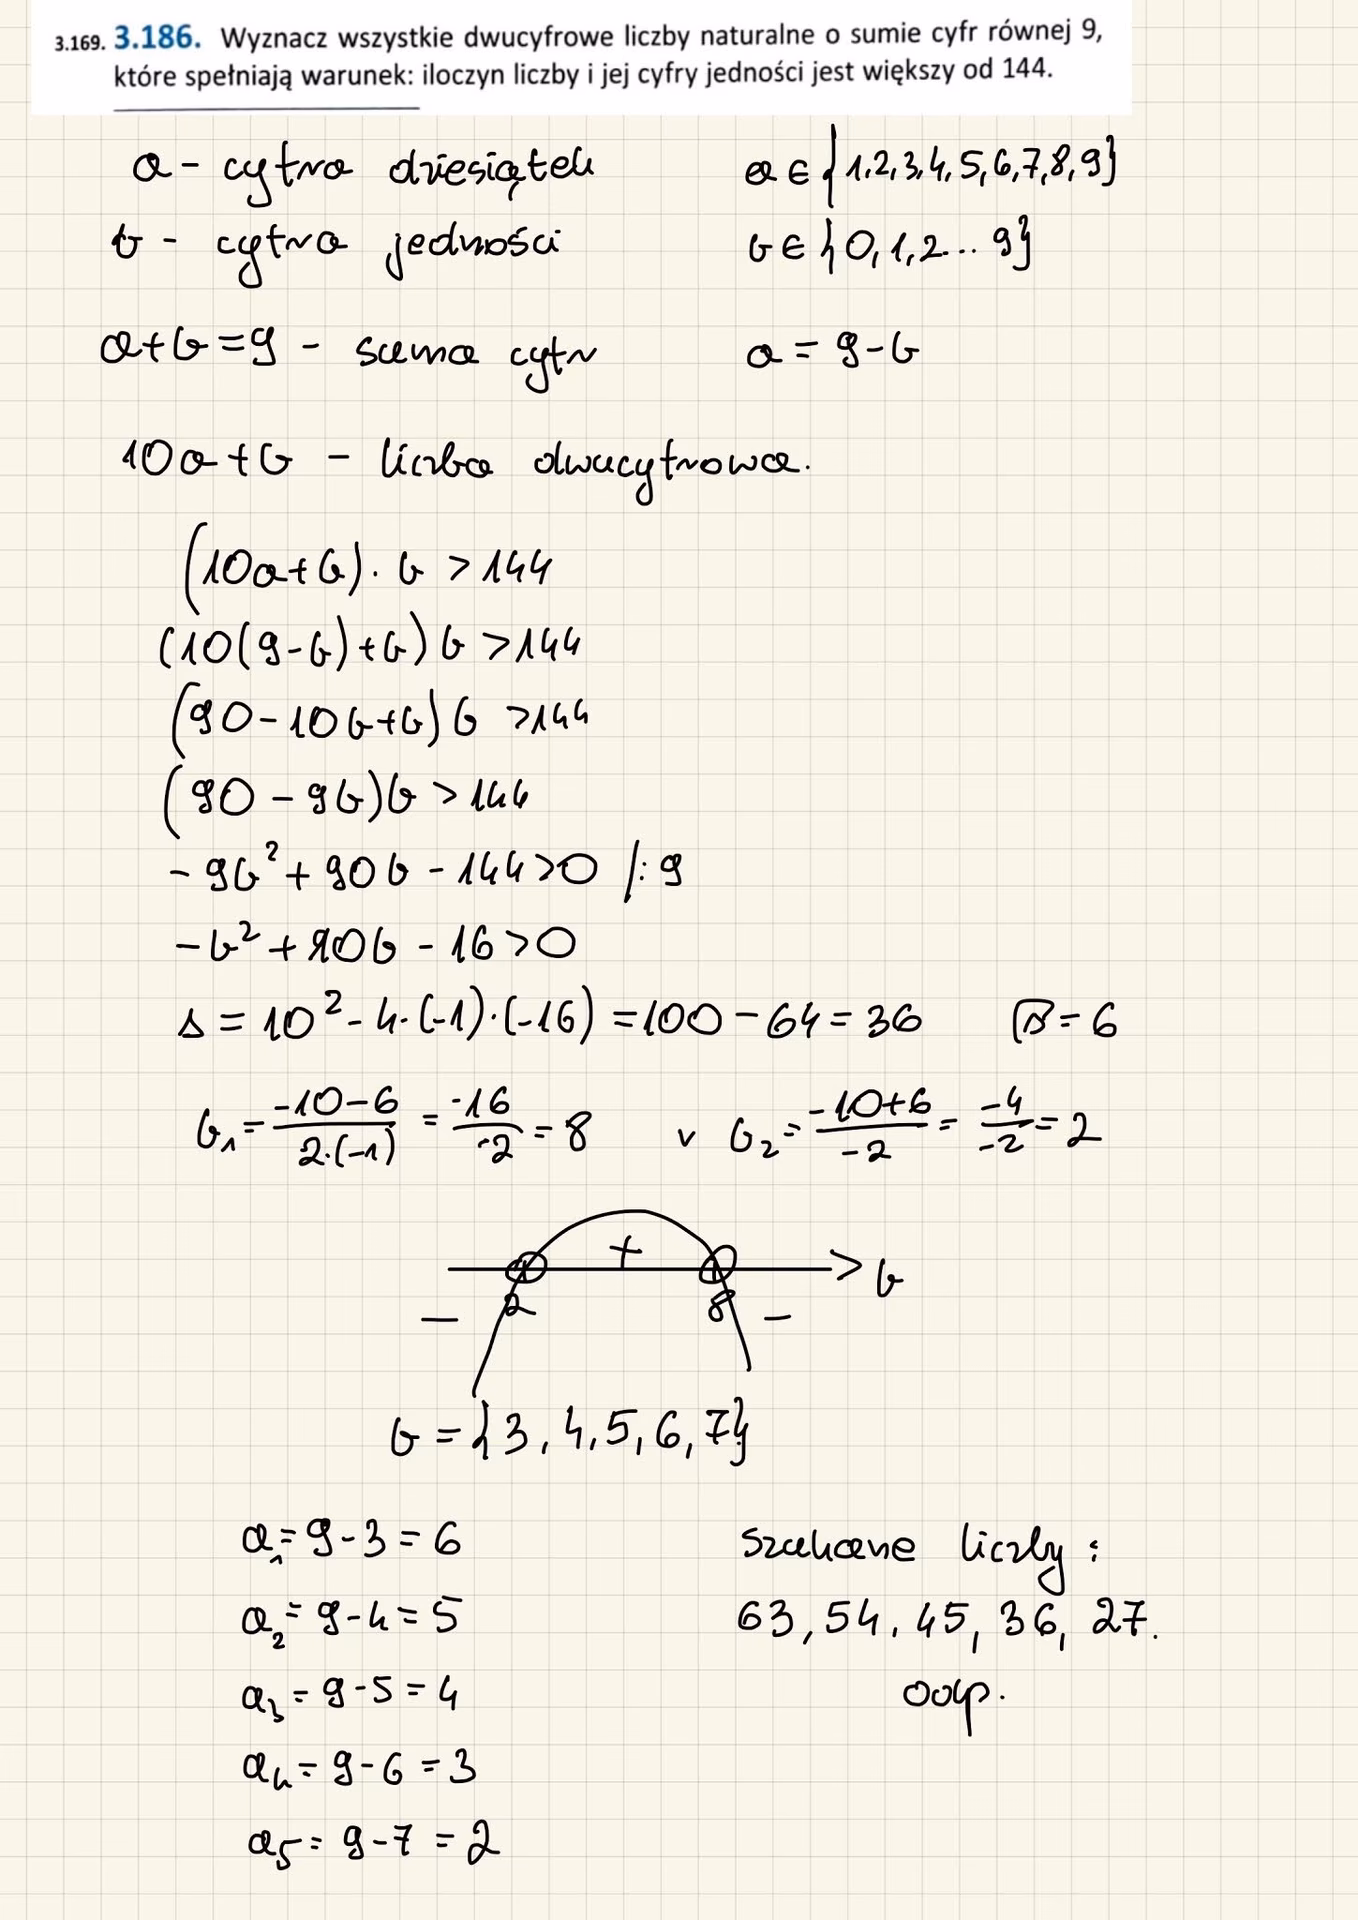 3.169. 3.186. Wyznacz wszystkie dwucyfrowe liczby naturalne o sumie cyfr równej 9,
które spełniają warunek: iloczyn liczby i jej cyfry jedności jest większy od 144.
a - cyfra dziesiątek a ∈ {1,2,3,4,5,6,7,8,9}
b - cyfra jedności b ∈ {0,1,2...9}
a+b=9 - suma cyfr a = 9-b
10a+b - liczba dwucyfrowa.
(10a+b)·b >144
(10(9-b)+b)b >144
(90-10b+b)b >144
(90-9b)b >144
-9b²+90b-144>0 /:9
-b²+10b-16>0
Δ=10²-4·(-1)·(-16)=100-64=36 √Δ=6
b₁=\frac{-10-6}{2·(-1)}=\frac{-16}{-2}=8 v b₂=\frac{-10+6}{-2}=\frac{-4}{-2}=2
+
> b
2 8
- -
b={3,4,5,6,7}
a₁=9-3=6 Szukane liczby:
a₂=9-4=5 63,54,45,36,27.
a₃=9-5=4 odp.
a₄=9-6=3
a₅=9-7=2